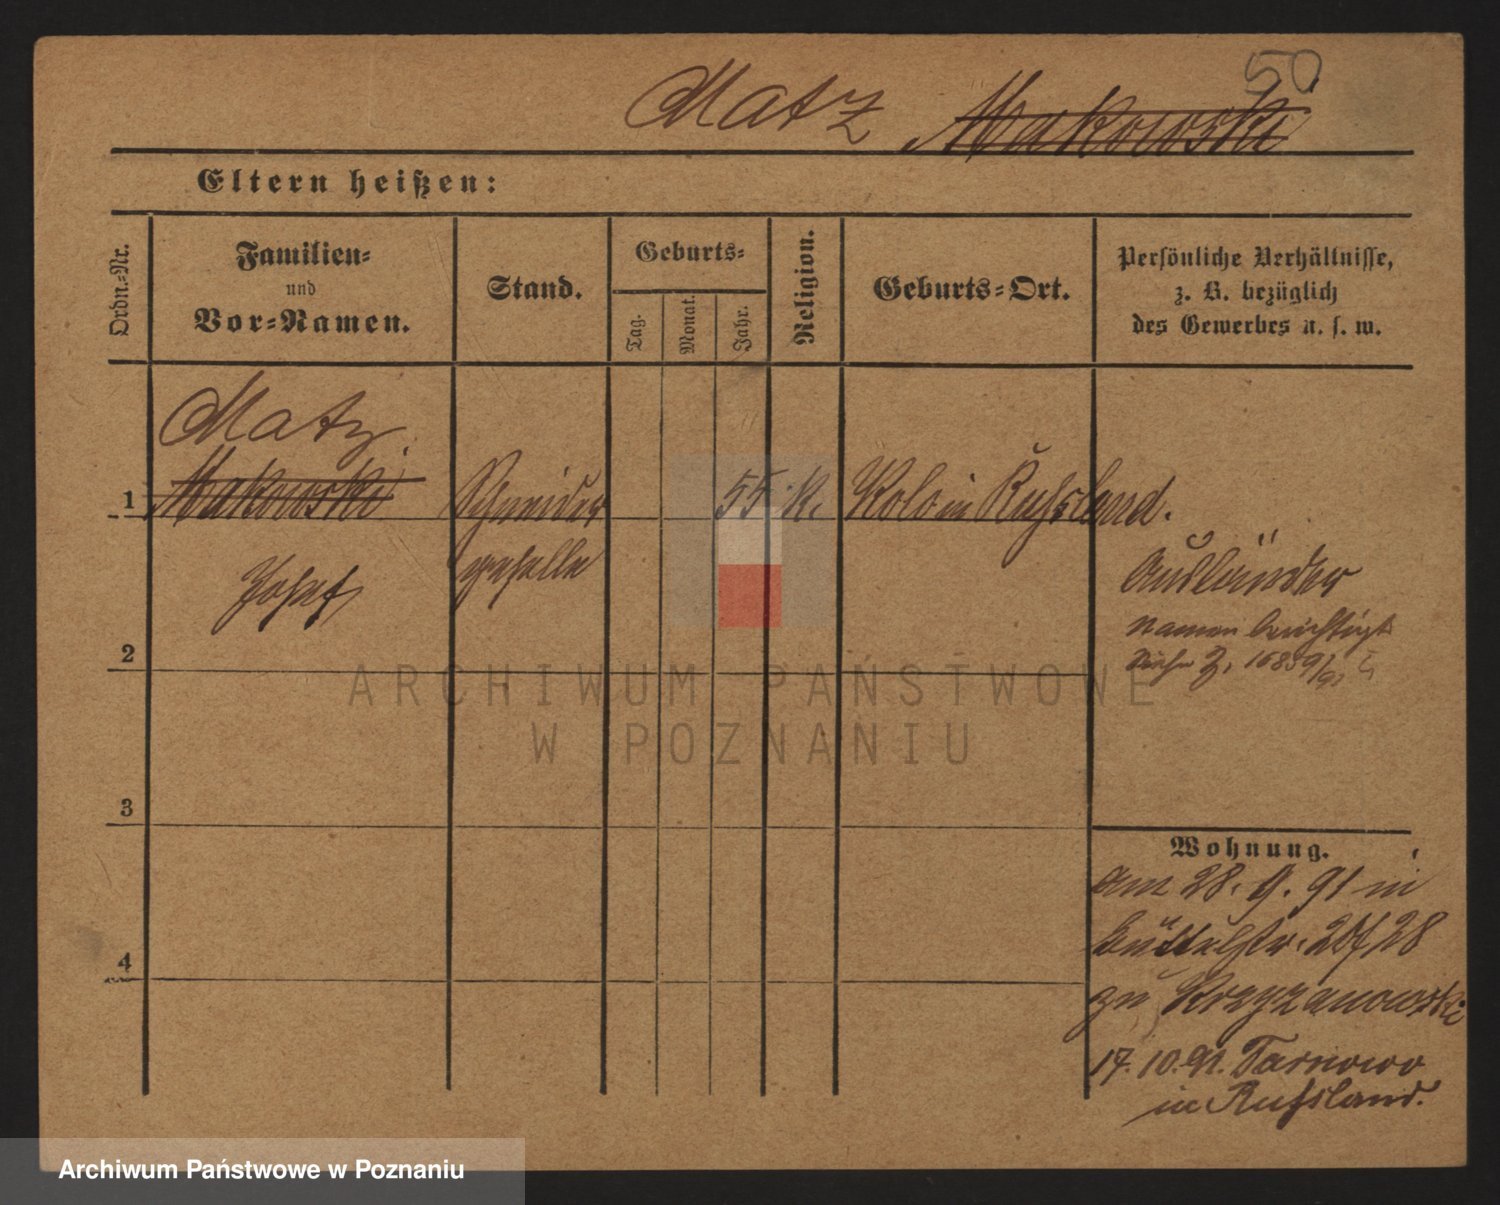 50
Matz ~~Makowski~~
Eltern heißen:
Ordn.-Nr.
Familien-
und
Vor-Namen.
Stand.
Geburts-
Tag.
Monat.
Jahr.
Religion.
Geburts-Ort.
Persönliche Verhältnisse,
z. B. bezüglich
des Gewerbes u. s. w.
Matz
1 ~~Makowski~~ Schneider 55 k. Kolo in Russland.
Josef geselle
Ausländer
Namen berichtigt
siehe
2
3
4
Wohnung.
am 28. 9. 91 in
Büttelstr.
zu Krzyzanowski
17. 10. 91. Tarnowo
in Russland.
ARCHIWUM PAŃSTWOWE
W POZNANIU
Archiwum Państwowe w Poznaniu